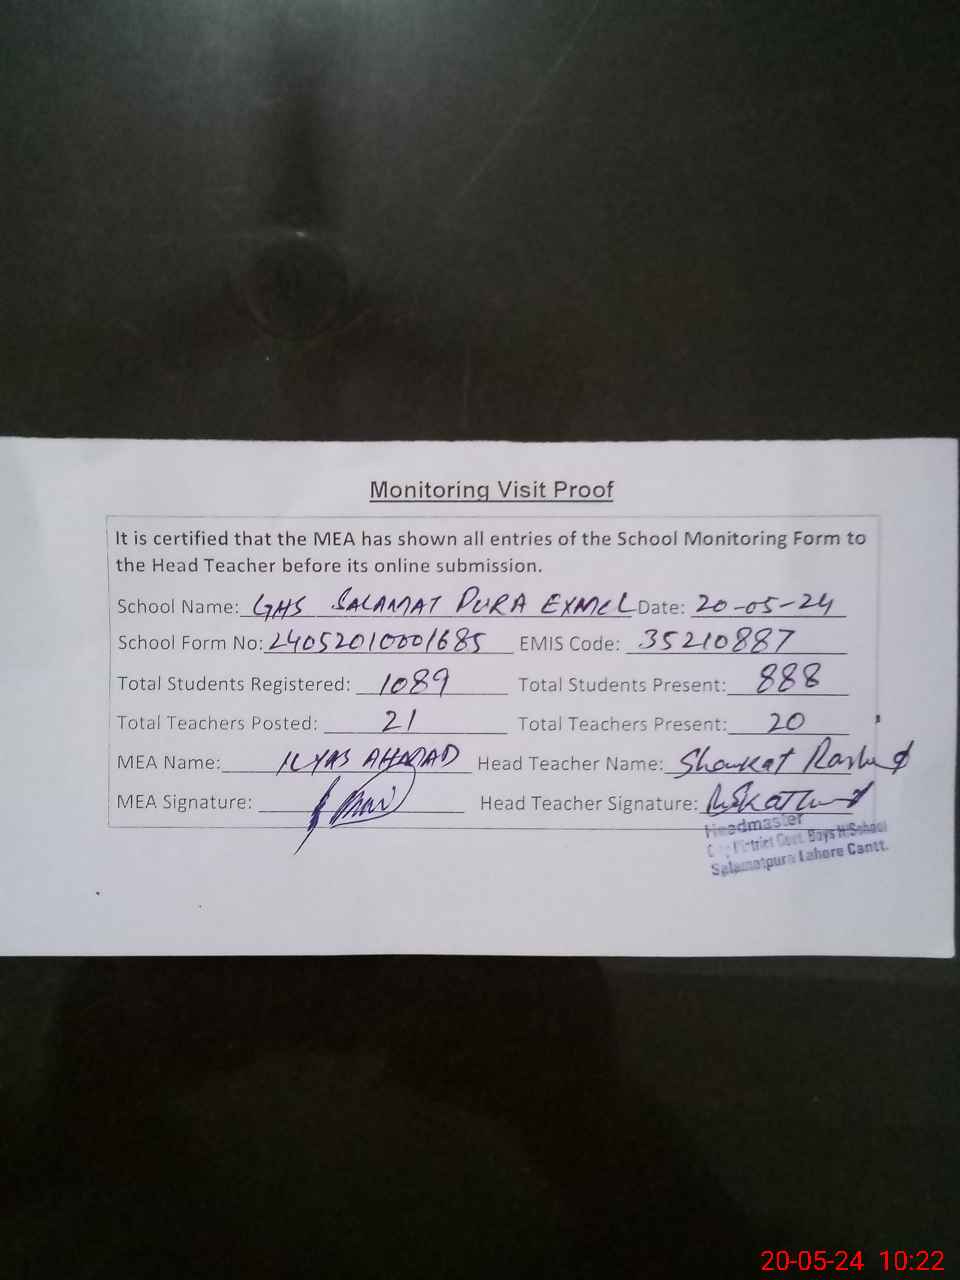 Monitoring Visit Proof
It is certified that the MEA has shown all entries of the School Monitoring Form to
the Head Teacher before its online submission.
School Name: GHS SALAMAT PURA EXMCL Date: 20-05-24
School Form No: 24052010001685 EMIS Code: 35210887
Total Students Registered: 1089 Total Students Present: 888
Total Teachers Posted: 21 Total Teachers Present: 20
MEA Name: ILYAS AHMAD Head Teacher Name: Shaukat Rashid
MEA Signature: Head Teacher Signature:
Headmaster
District Govt. Boys H/School
Salamatpura Lahore Cantt.
20-05-24 10:22